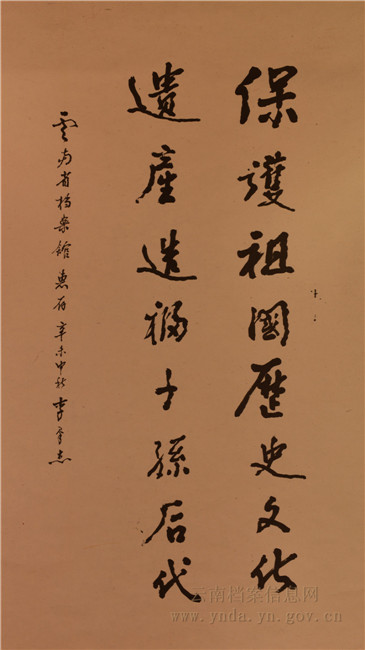 保護祖國歷史文化
遺產造福子孫后代
雲南省档案館惠存 辛未中秋 李
云南档案信息网
www.ynda.yn.gov.cn